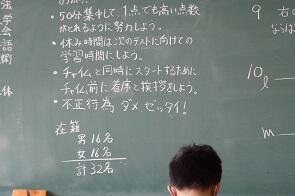 ・50分集中して、1点でも高い点数
がとれるように努力しよう。
・休み時間は次のテストに向けての
学習時間にしよう。
・チャイムと同時にスタートするために
チャイム前に着席と挨拶をしよう。
・不正行為 ダメ、ゼッタイ！
在籍
男 16名
女 16名
計 32名
9 右の
ならは
10 l
m